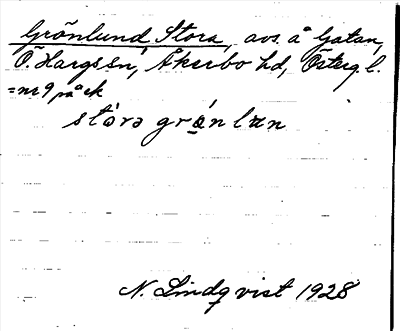 Grönlund Stora, avs. å Gatan,
Ö. Hargs sn, Åkerbo hd, Österg. l.
= nr 9 på ek
stórə grǿnlun
N. Lindqvist 1928